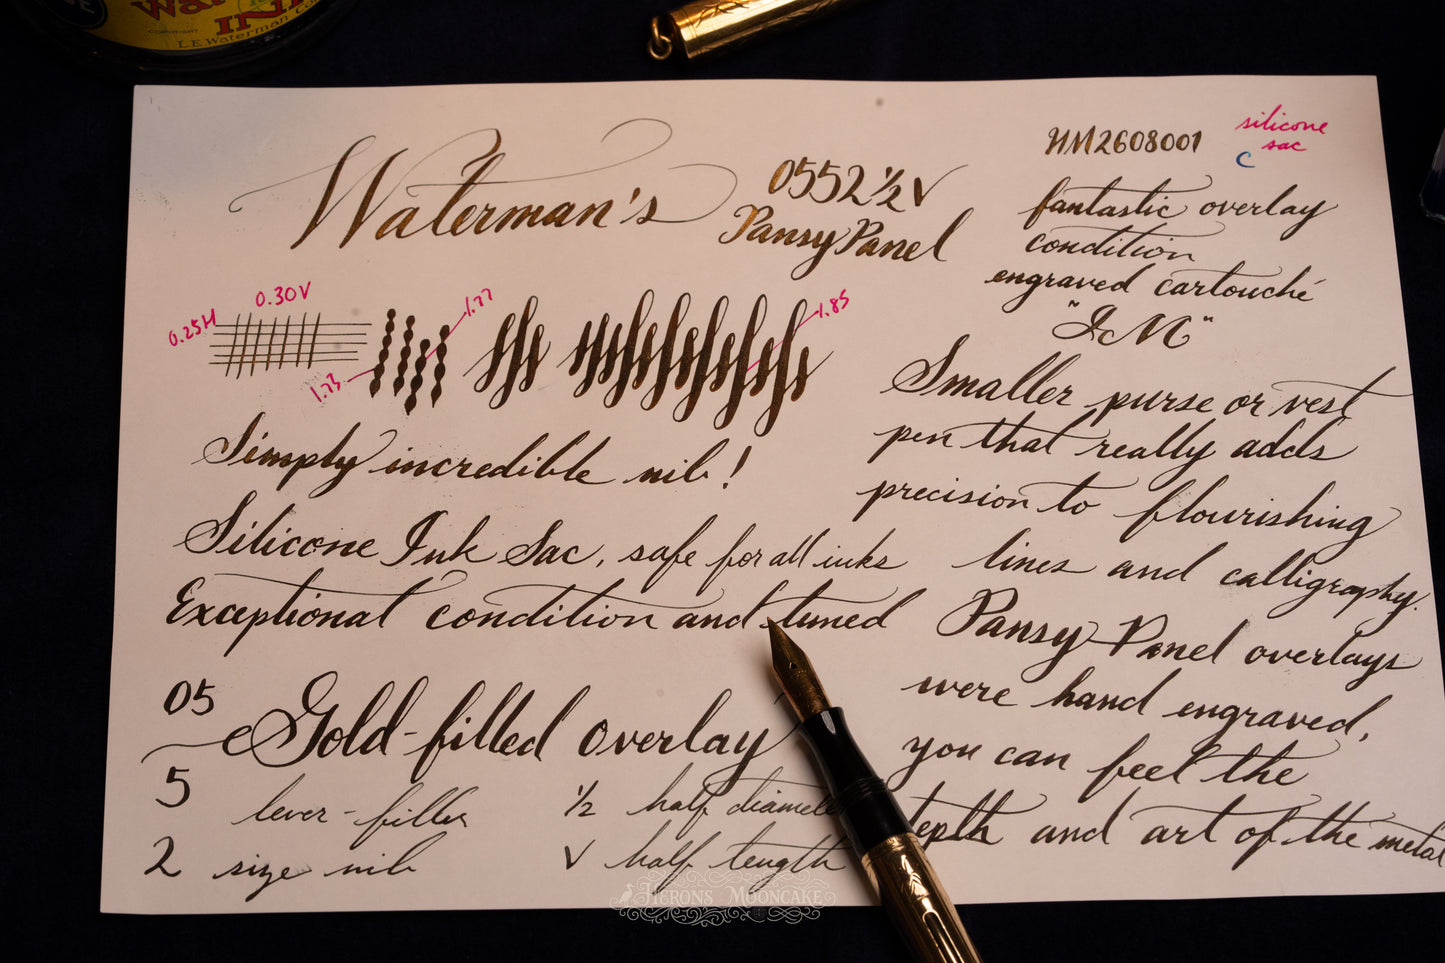 Waterman's
INK
COPYRIGHT
L.E. Waterman Co.
Waterman's
0552½V
Pansy Panel
HM2608001
silicone
sac
C
fantastic overlay
condition
engraved cartouché
"JM"
0.25H
0.30V
1.73
1.77
1.85
Simply incredible nib!
Silicone Ink Sac, safe for all inks
Exceptional condition and tuned
05 Gold-filled overlay
5 lever-filler
2 size nib
½ half diameter
V half length
Smaller purse or vest
pen that really adds
precision to flourishing
lines and calligraphy.
Pansy Panel overlays
were hand engraved,
you can feel the
depth and art of the metal
HERONS MOONCAKE